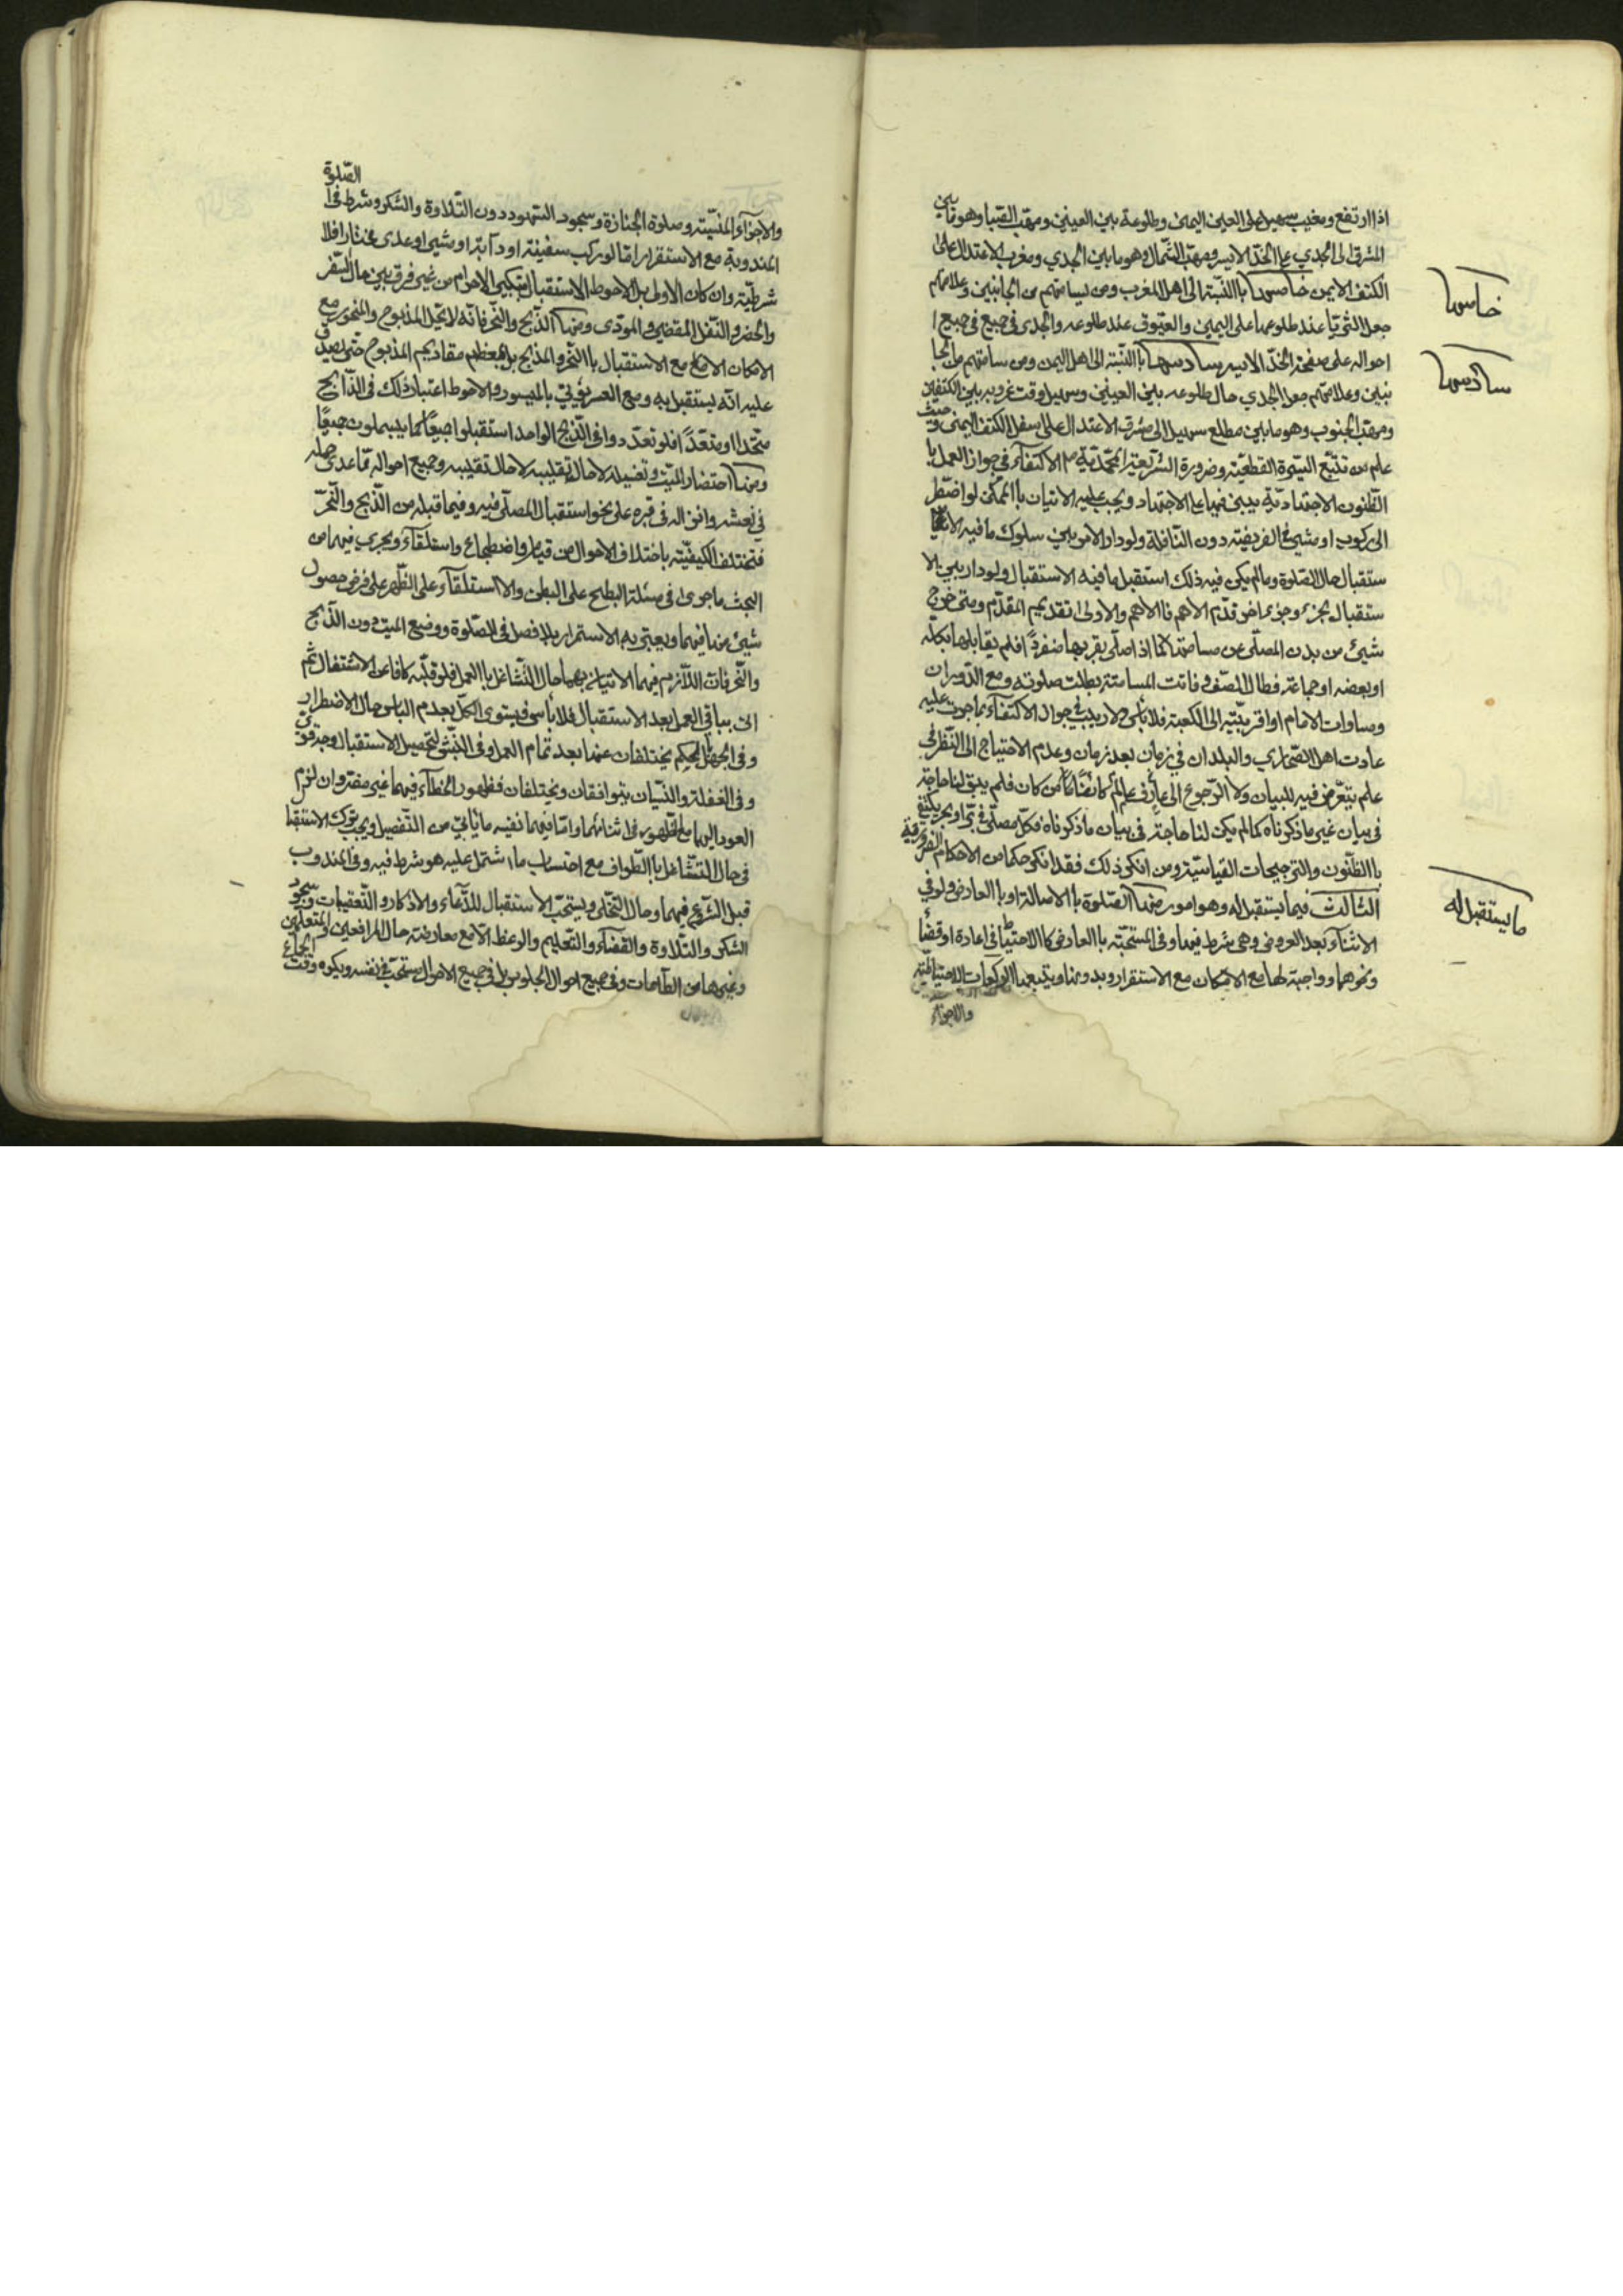 اذا ارتفع ومغيب سهيل على العين اليمنى وطلوعه بين العينين ومهبّ الصبا وهو ما بين
المشرق الى الجدي على الخدّ الايسر ومهبّ الشمال وهو ما بين الجدي ومغرب الاعتدال على
الكتف الايمن خامسها باالنسبة الى اهل المغرب ومن يسامتهم من الجانبين وعلامتهم
جعل الثريّا عند طلوعها على اليمين والعيّوق عند طلوعه والجدى في جميع
احواله على صفحة الخدّ الايسر سادسها باالنسبة الى اهل اليمن ومن سامتهم من الجا
نبين وعلامتهم جعل الجدي حال طلوعه بين العينين وسهيل وقت غروبه بين الكتفين
ومهبّ الجنوب وهو ما بين مطلع سهيل الى مشرق الاعتدال على اسفل الكتف اليمنى وحيث
علم من تتبّع السيرة القطعيّة وضرورة الشريعة المحمّديّة ص الاكتفاء في جواز العمل با
الظنون الاجتهاديّة يبني فيها على الاجتهاد ويجب عليه الاتيان باالممكن لو اضطرّ
الى ركوب او مشيئ في الفريضة دون النافلة ولو دار الامر بين سلوك ما فيه الا
ستقبال حال الصّلوة وما لم يكن فيه ذلك استقبل ما فيه الاستقبال ولو دار بين الا
ستقبال بجزء وجزء اخر قدّم الاهم فاالاهم والاولى تقديم المقدّم ومتى خرج
شيئ من بدن المصلّي عن مسامتها كما اذا صلّى بقربها منفردًا فلم يقابلها بكلّه
او بعضه او جماعة فطال الصّف وفاتت المسامتة بطلت صلوته ومع الدّوران
ومساوات الامام او اقربيّته الى الكعبة فلا بأس ولا ريب في جواز الاكتفاء بما جرت عليه
عادت اهل الصّحاري والبلدان في زمان بعد زمان وعدم الاحتياج الى النّظر في
علم يتعّرض فيه للبيان ولا الرّجوع الى عارف عالم كائنًا من كان فلم يبق لنا حاجة
في بيان غير ما ذكرناه كما لم يكن لنا حاجة في بيان ما ذكرناه فكلّ مصلّ في برّ او بحر يكتفي
باالظّنون والترجيحات القياسيّة ومن انكر ذلك فقد انكر حكما من الاحكام الضروريّة
الثالث فيما يستقبل له وهو امور منها الصّلوة باالاصالة او باالعارض ولو في
الاثناء بعد العروض وهى شرط فيها وفى المستحبّة باالعارض كاالاحتياط في اعادة او قضاء
ونحوهما وواجبة لها مع الامكان مع الاستقرار وبدونها ويتبعها الركعات الاحتياطيّة
والاجزاء
خامسها
سادسها
ما يستقبل له
الصّلوة
والاجزاء المنسيّة وصلوة الجنازة وسجود السّهو دون التّلاوة والشكر وشرط فى
المندوبة مع الاستقرار امّا لو ركب سفينة او دآبة او مشى او عدى مختارا فلا
شرطيّة وان كان الاولى بل الاحوط الاستقبال بتكبير الاحرام من غير فرق بين حال السّفر
والحضر والنّفل المقضي والمودّى ومنها الذّبح والنّحر فانّه لا تحلّ المذبوح والمنحور مع
الامكان الا مع الاستقبال باالنّحر والمذبح بل بمعظم مقاديم المذبوح حتى يصدق
عليه انّه يستقبل به ومع العسر يؤتى بالميسور والاحوط اعتبار ذلك فى الذّابح
متّحدا او متعدّدًا فلو تعدّدوا فى الذّبح الواحد استقبلوا جميعًا كما يبسملون جميعًا
ومنها احتضار الميّت وتغسيله لا حال تقليبه وجميع احواله ممّا عدى حمله
في نعشه وانزاله فى قبره على نحو استقبال المصلّى فيه وفيما قبله من الذّبح والنّحر
فتختلف الكيفيّة باختلاف الاحوال من قيام واضطجاع واستلقاء ويجرى فيها من
البحث ما جرى فى مسئلة البطح على البطن والاستلقاء على الظّهر على فرض حصول
شيئ منها فيهما ويعتبر به الاستمرار بلا فصل فى الصّلوة ووضع الميّت دون الذّبح
والنّحر فانّ اللّازم فيهما الاتيان بهما حال التّشاغل باالعمل فلو قلّبه كافا عن الاشتغال ثم
اتى بباقي العمل بعد الاستقبال فلا بأس ويستوى الكلّ بعدم البأس حال الاضطرار
وفى الجهل بالحكم يختلفان عنها بعد تمام العمل وفى النّبش لتحصيل الاستقبال وجه قوّى
وفى الغفلة والنّسيان يتوافقان ويختلفان فظهور الخطاء فيهما غير مضرّ وان لزم
العود اليها مع الظهور فى اثنائهما وامّا فيها ففيه ما يأتي من التّفصيل ويجب ترك الاستقبال
في حال التّشاغل باالطّواف مع احتساب ما اشتمل عليه هو شرط فيه وفى المندوب
قبل الشّروع فيهما وحال التّخلّى ويستحبّ الاستقبال للدّعاء والاذكار والتّعقيبات وسجود
الشكر والتّلاوة والقضاء والتّعليم والوعظ الّا مع معارضة حال المرافعين والمتعلّمين
وغيرها من الطّاعات وفى جميع احوال الجلوس بل فى جميع الاحوال مستحبّ فى نفسه ويكره وقت الجماع